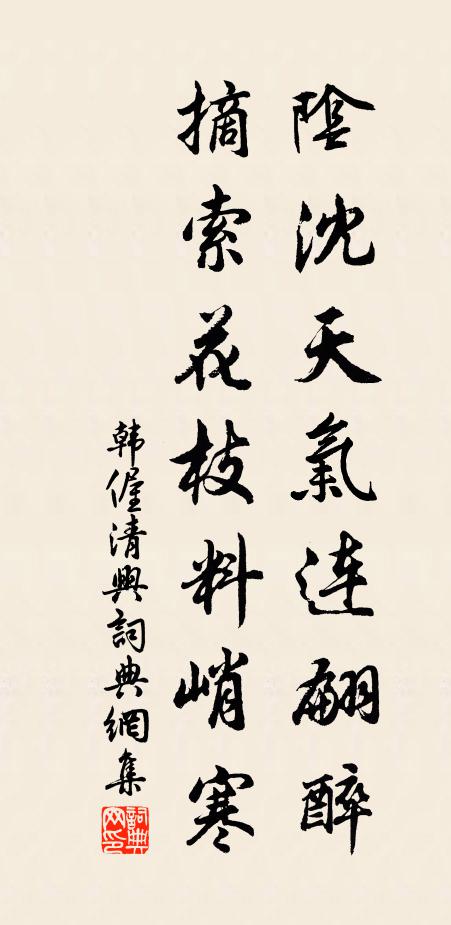 陰沈天氣連翩醉
摘索花枝料峭寒
韩偓清興詞典網集
詞典網印